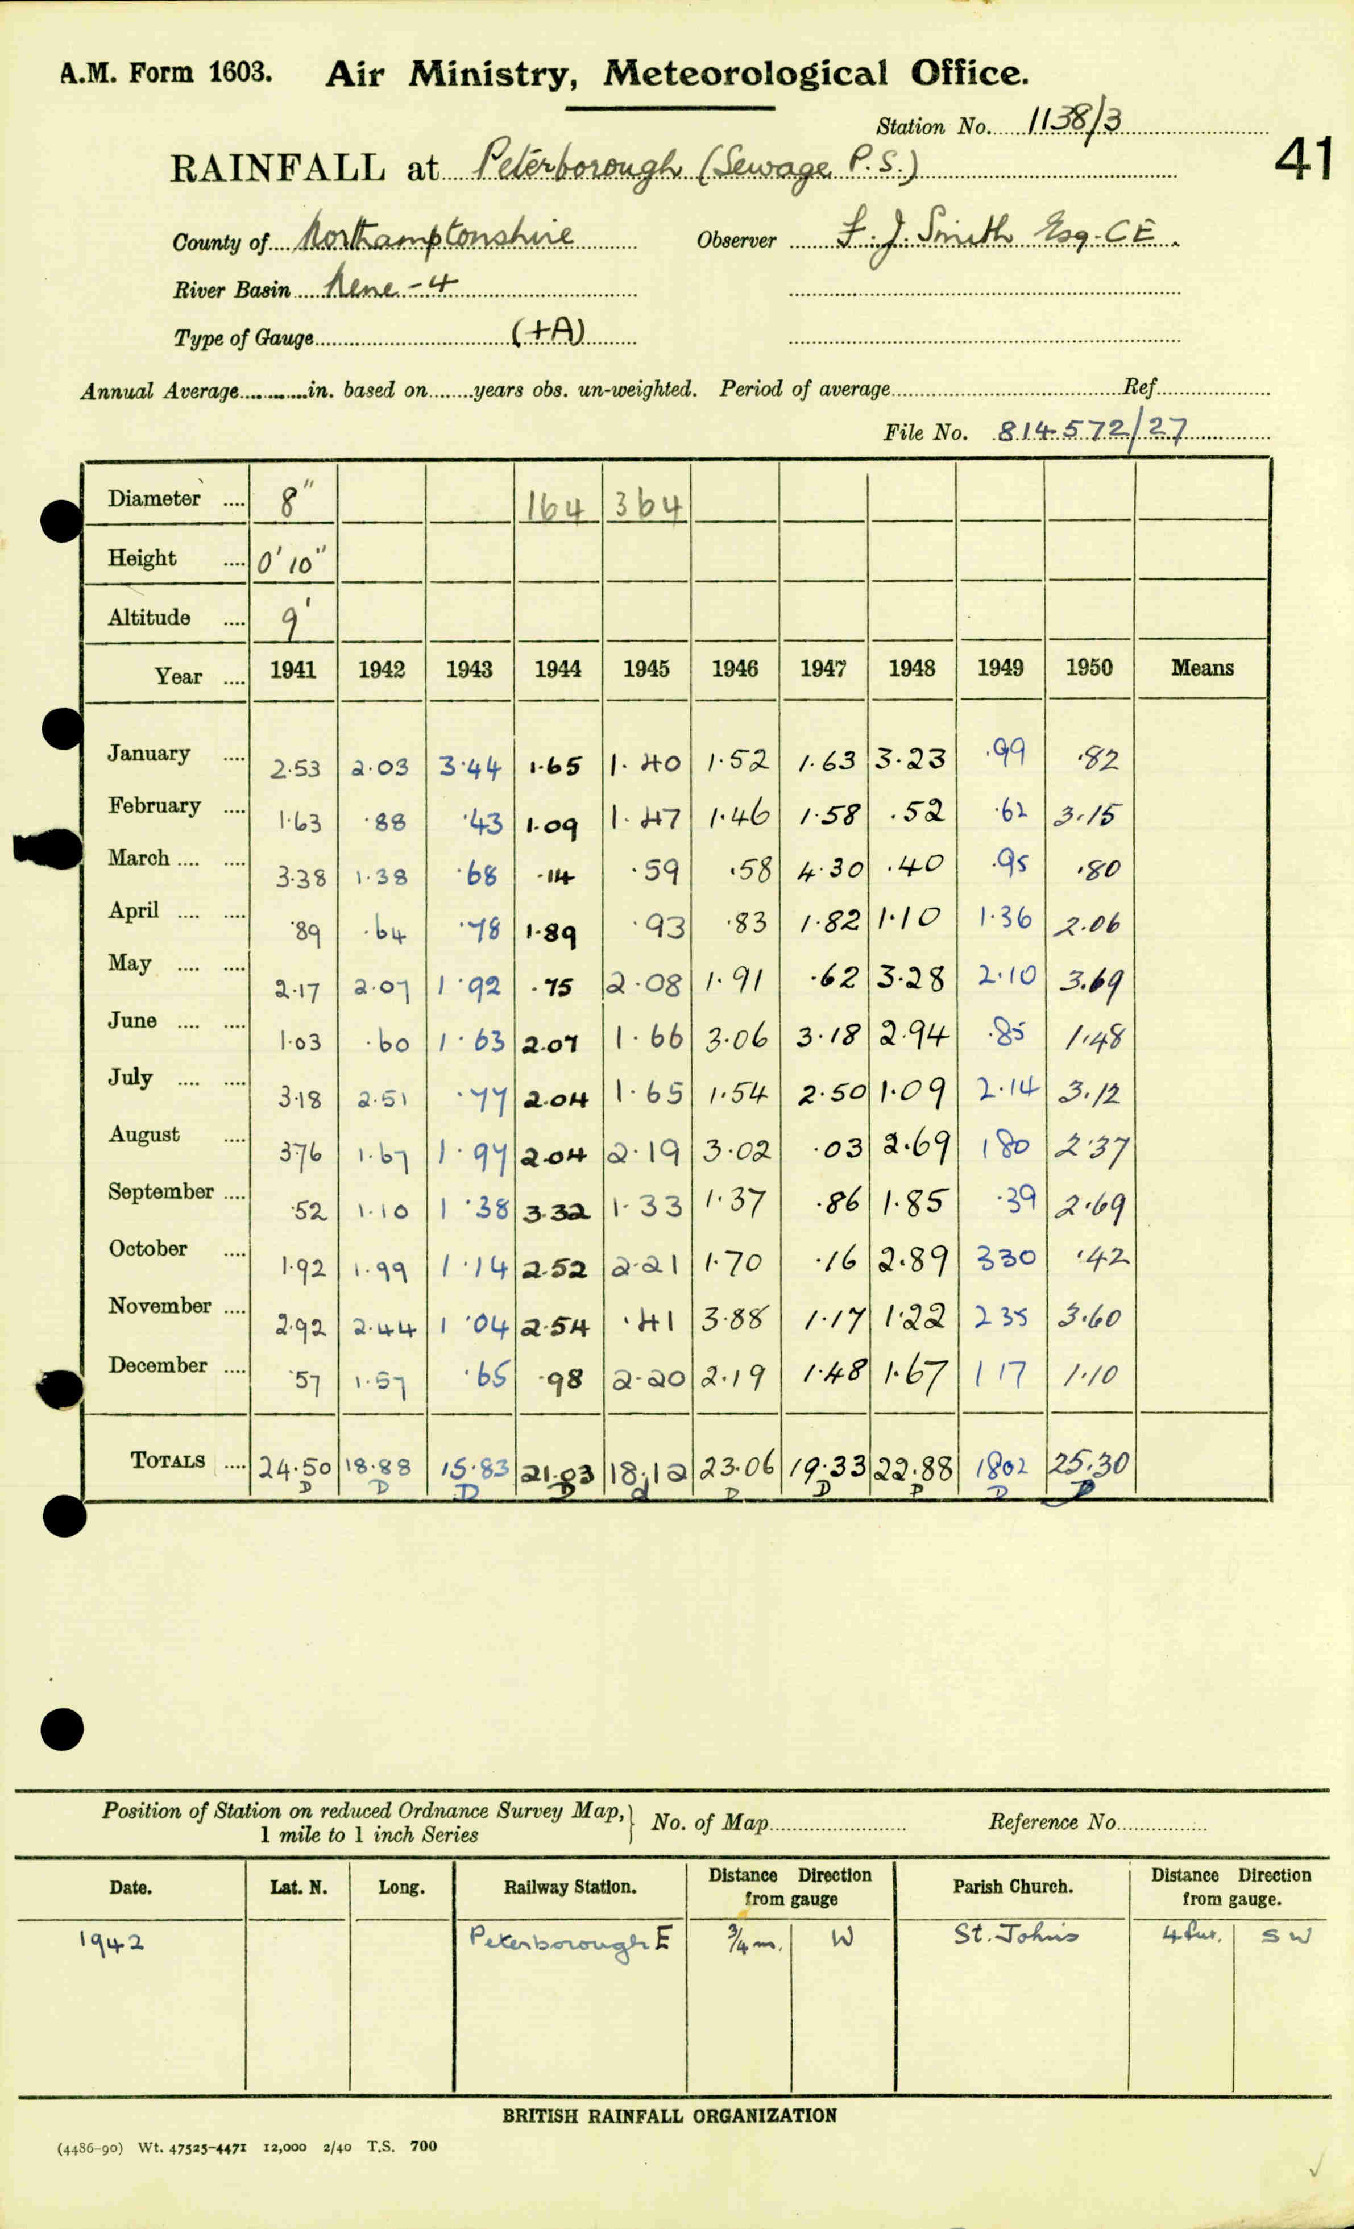 A.M. Form 1603. Air Ministry, Meteorological Office.
Station No. 1138/3
41
RAINFALL at Peterborough (Sewage P.S.)
County of Northamptonshire Observer F. J. Smith Esq. CE.
River Basin Nene - 4
Type of Gauge (+A)
Annual Average in. based on years obs. un-weighted. Period of average Ref
File No. 814572/27
Diameter 8" 164 364
Height 0' 10"
Altitude 9'
Year 1941 1942 1943 1944 1945 1946 1947 1948 1949 1950 Means
January 2.53 2.03 3.44 1.65 1.40 1.52 1.63 3.23 .99 .82
February 1.63 .88 .43 1.09 1.47 1.46 1.58 .52 .62 3.15
March 3.38 1.38 .68 .14 .59 .58 4.30 .40 .95 .80
April .89 .64 .78 1.89 .93 .83 1.82 1.10 1.36 2.06
May 2.17 2.07 1.92 .75 2.08 1.91 .62 3.28 2.10 3.69
June 1.03 .60 1.63 2.07 1.66 3.06 3.18 2.94 .85 1.48
July 3.18 2.51 .77 2.04 1.65 1.54 2.50 1.09 2.14 3.12
August 3.76 1.67 1.97 2.04 2.19 3.02 .03 2.69 1 80 2.37
September .52 1.10 1.38 3.32 1.33 1.37 .86 1.85 .39 2.69
October 1.92 1.99 1.14 2.52 2.21 1.70 .16 2.89 3 30 .42
November 2.92 2.44 1.04 2.54 .41 3.88 1.17 1.22 2 35 3.60
December .57 1.57 .65 .98 2.20 2.19 1.48 1.67 1 17 1.10
TOTALS 24.50 18.88 15.83 21.03 18.12 23.06 19.33 22.88 1802 25.30
D D D D d D D D D D
Position of Station on reduced Ordnance Survey Map, 1 mile to 1 inch Series No. of Map Reference No.
Date. Lat. N. Long. Railway Station. Distance Direction from gauge Parish Church. Distance Direction from gauge.
1942 Peterborough E 3/4 m. W St. John's 4 fur. SW
BRITISH RAINFALL ORGANIZATION
(4486-90) Wt. 47525-4471 12,000 2/40 T.S. 700